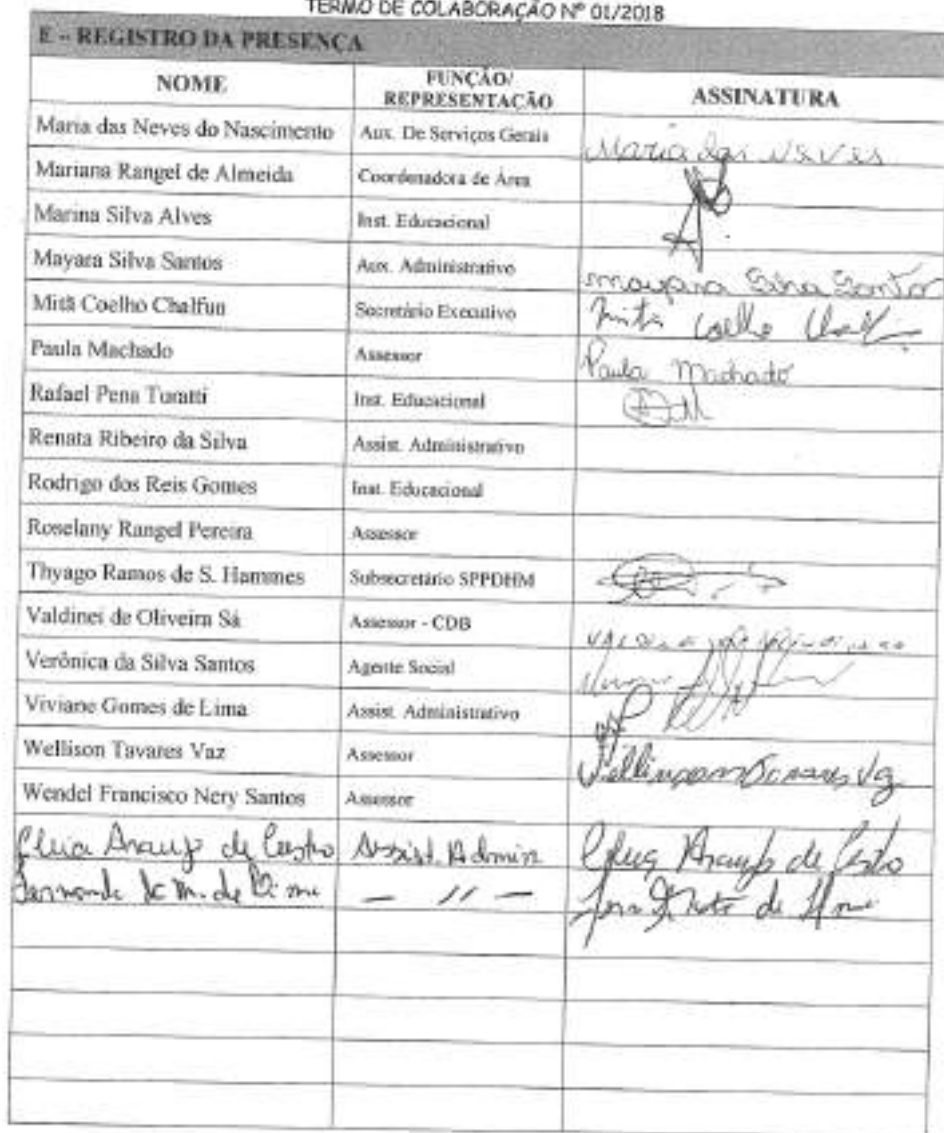 TERMO DE COLABORAÇÃO Nº 01/2018
E – REGISTRO DA PRESENÇA
NOME FUNÇÃO/ REPRESENTAÇÃO ASSINATURA
Maria das Neves do Nascimento Aux. De Serviços Gerais Maria das Neves
Mariana Rangel de Almeida Coordenadora de Área
Marina Silva Alves Inst. Educacional
Mayara Silva Santos Aux. Administrativo Mayara Silva Santos
Mitã Coelho Chalfun Secretário Executivo Mitã Coelho
Paula Machado Assessor Paula Machado
Rafael Pena Turatti Inst. Educacional
Renata Ribeiro da Silva Assist. Administrativo
Rodrigo dos Reis Gomes Inst. Educacional
Roselany Rangel Pereira Assessor
Thyago Ramos de S. Hammes Subsecretário SPPDHM
Valdinei de Oliveira Sá Assessor - CDB
Verônica da Silva Santos Agente Social
Viviane Gomes de Lima Assist. Administrativo
Wellison Tavares Vaz Assessor
Wendel Francisco Nery Santos Assessor
Araujo de Castro Assist. Admin Araujo de Castro
— // —